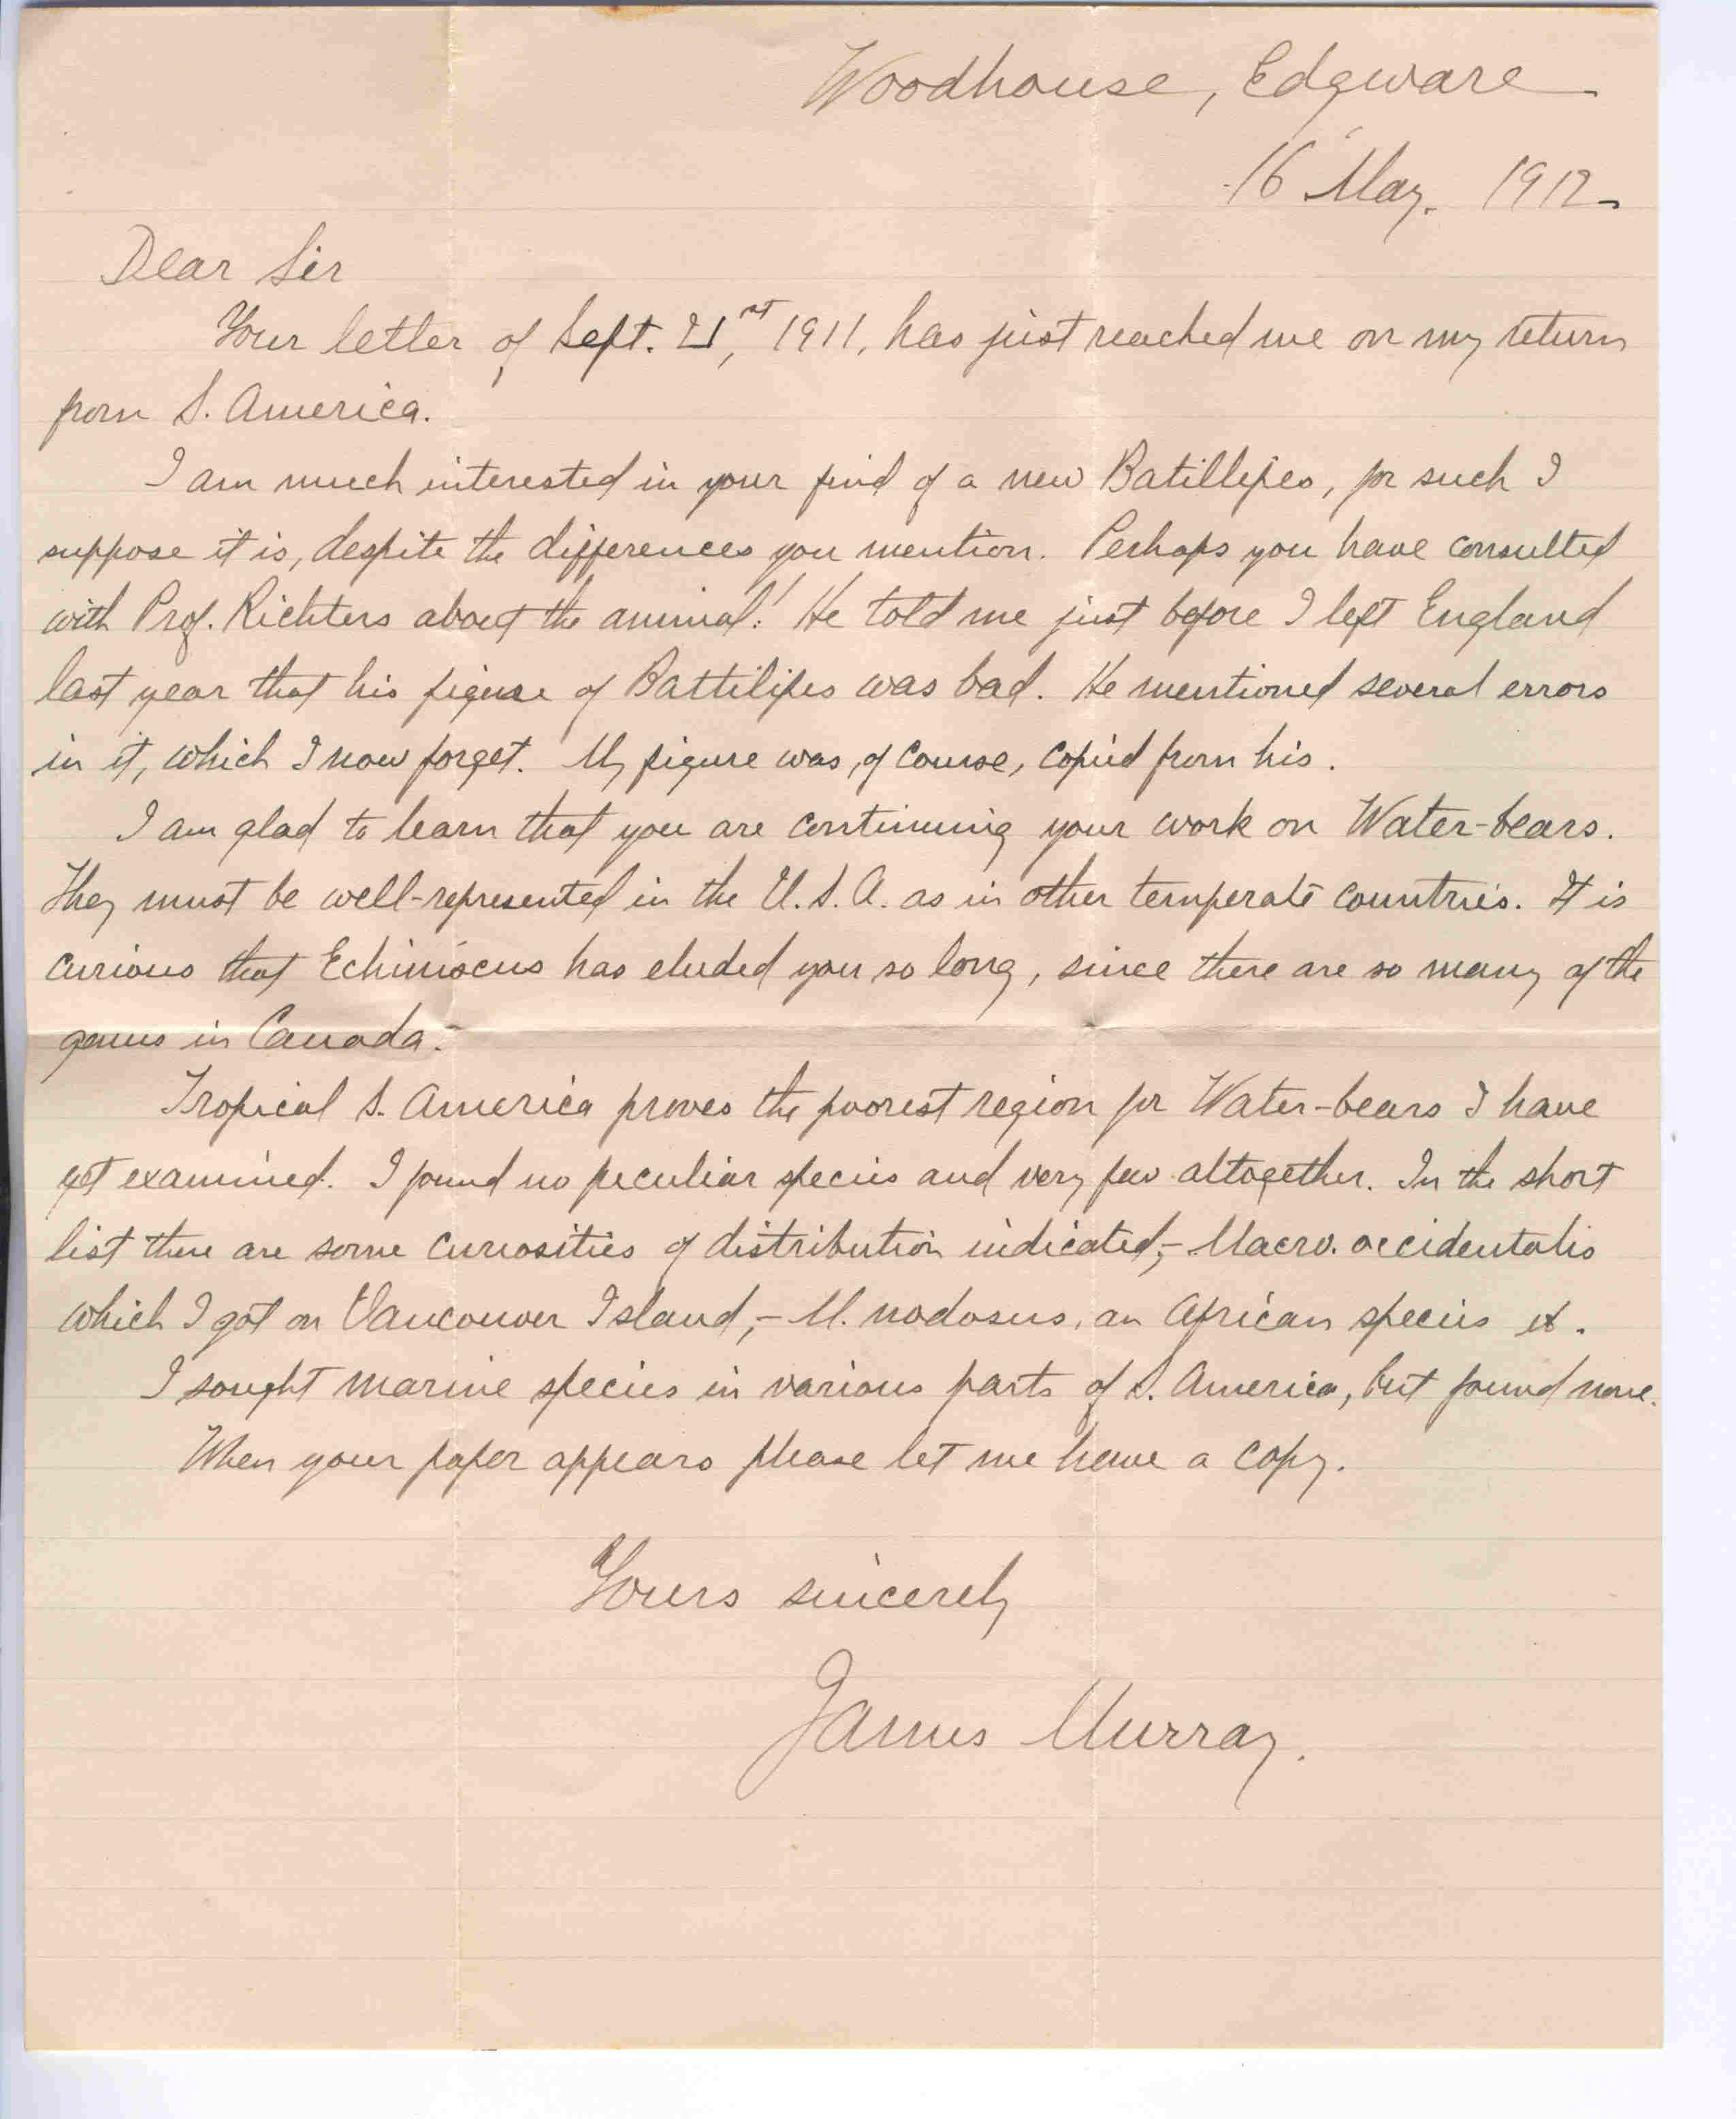 Woodhouse, Edgware
16 May. 1912
Dear Sir
Your letter of Sept. 21st, 1911, has just reached me on my return
from S. America.
I am much interested in your find of a new Batillipes, for such I
suppose it is, despite the differences you mention. Perhaps you have consulted
with Prof. Richters about the animal! He told me just before I left England
last year that his figure of Battilipes was bad. He mentioned several errors
in it, which I now forget. My figure was, of course, copied from his.
I am glad to learn that you are continuing your work on Water-bears.
They must be well-represented in the U.S.A. as in other temperate countries. It is
curious that Echiniscus has eluded you so long, since there are so many of the
genus in Canada.
Tropical S. America proves the poorest region for Water-bears I have
yet examined. I found no peculiar species and very few altogether. In the short
list there are some curiosities of distribution indicated,- Macro. occidentalis
which I got on Vancouver Island,- M. nodosus, an African species &.
I sought marine species in various parts of S. America, but found none.
When your paper appears please let me have a copy.
Yours sincerely
James Murray.